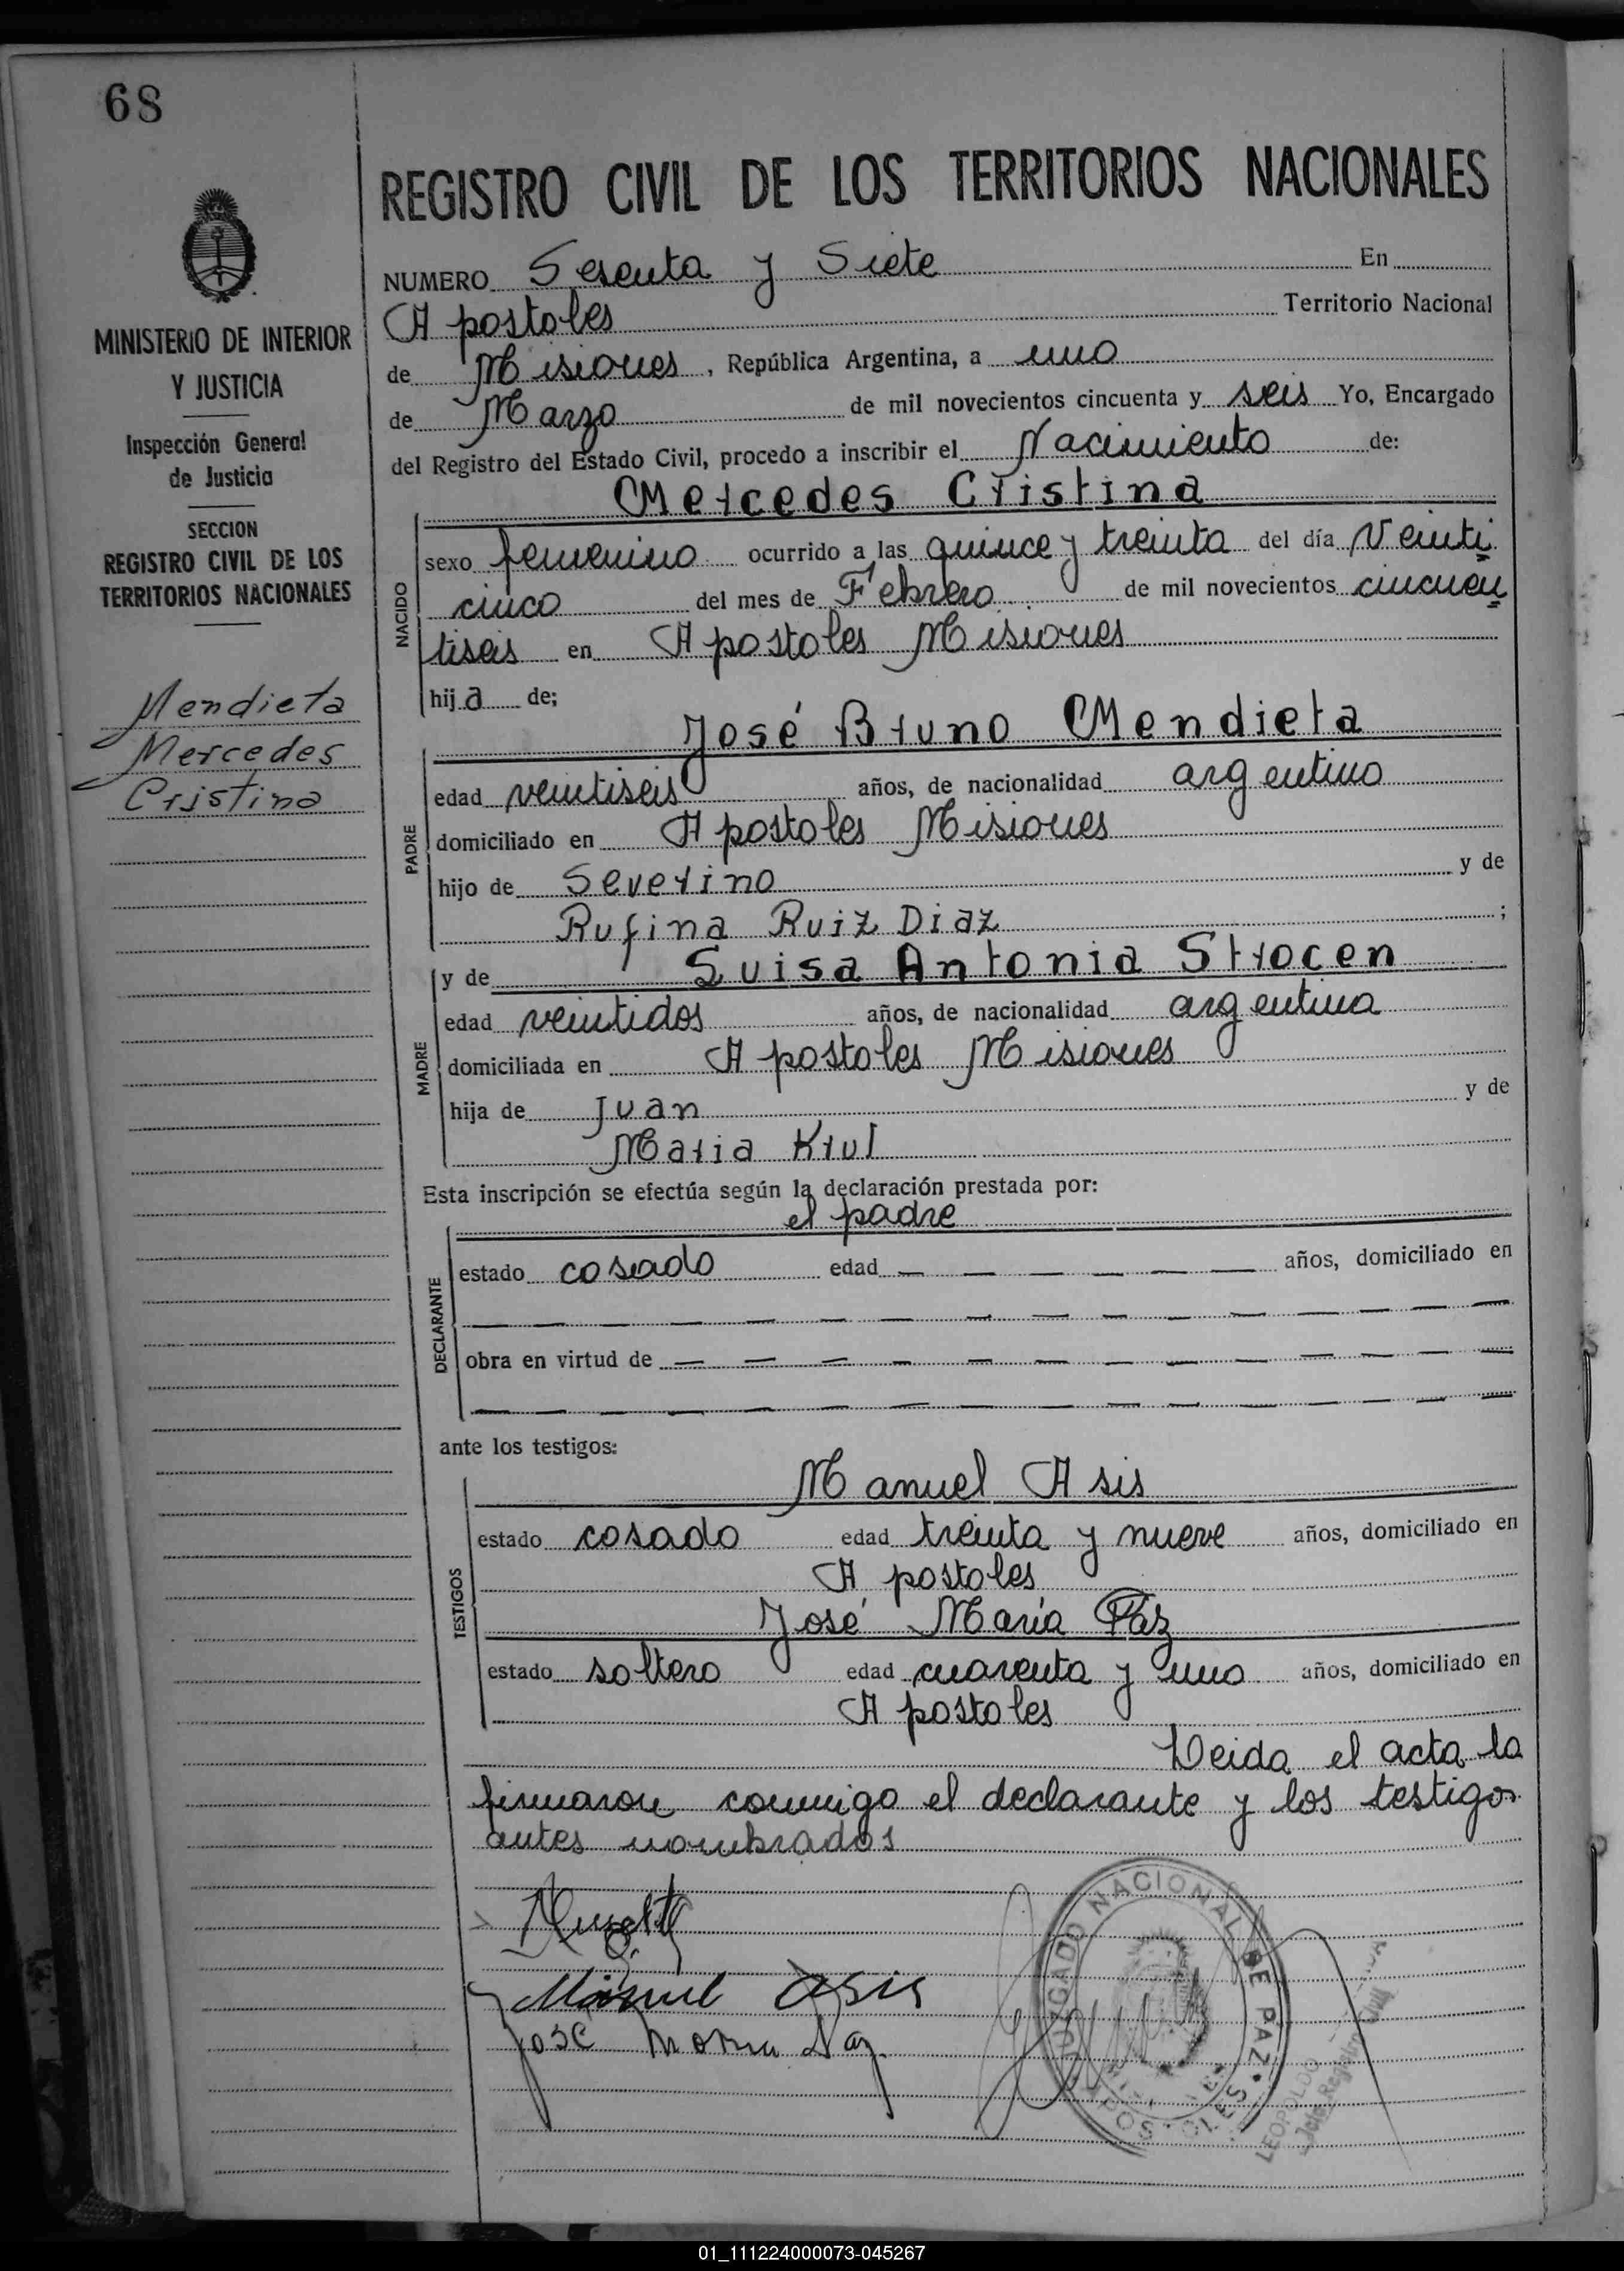 68
REGISTRO CIVIL DE LOS TERRITORIOS NACIONALES
MINISTERIO DE INTERIOR
Y JUSTICIA
Inspección General
de Justicia
SECCION
REGISTRO CIVIL DE LOS
TERRITORIOS NACIONALES
Mendieta
Mercedes
Cristina
NUMERO Sesenta y Siete En
Apostoles Territorio Nacional
de Misiones, República Argentina, a uno
de Marzo de mil novecientos cincuenta y seis Yo, Encargado
del Registro del Estado Civil, procedo a inscribir el Nacimiento de:
Mercedes Cristina
NACIDO
sexo femenino ocurrido a las quince y treinta del día Veinti
cinco del mes de Febrero de mil novecientos cincuen
tiseis en Apostoles Misiones
hija de;
PADRE
José Bruno Mendieta
edad veintiseis años, de nacionalidad argentino
domiciliado en Apostoles Misiones
hijo de Severino y de
Rufina Ruiz Diaz ;
MADRE
y de Luisa Antonia Strocen
edad veintidos años, de nacionalidad argentina
domiciliada en Apostoles Misiones
hija de Juan y de
Maria Krul
Esta inscripción se efectúa según la declaración prestada por:
DECLARANTE
el padre
estado casado edad — — — — — años, domiciliado en
obra en virtud de — — — — — — — — — — — —
ante los testigos:
TESTIGOS
Manuel Asis
estado casado edad treinta y nueve años, domiciliado en
Apostoles
José María Paz
estado soltero edad cuarenta y uno años, domiciliado en
Apostoles
Leida el acta la
firmaron conmigo el declarante y los testigos
antes nombrados
Manuel Asis
José Maria Paz
JUZGADO NACIONAL DE PAZ
APOSTOLES
LEOPOLDO
Jefe Registro Civil
01_111224000073-045267